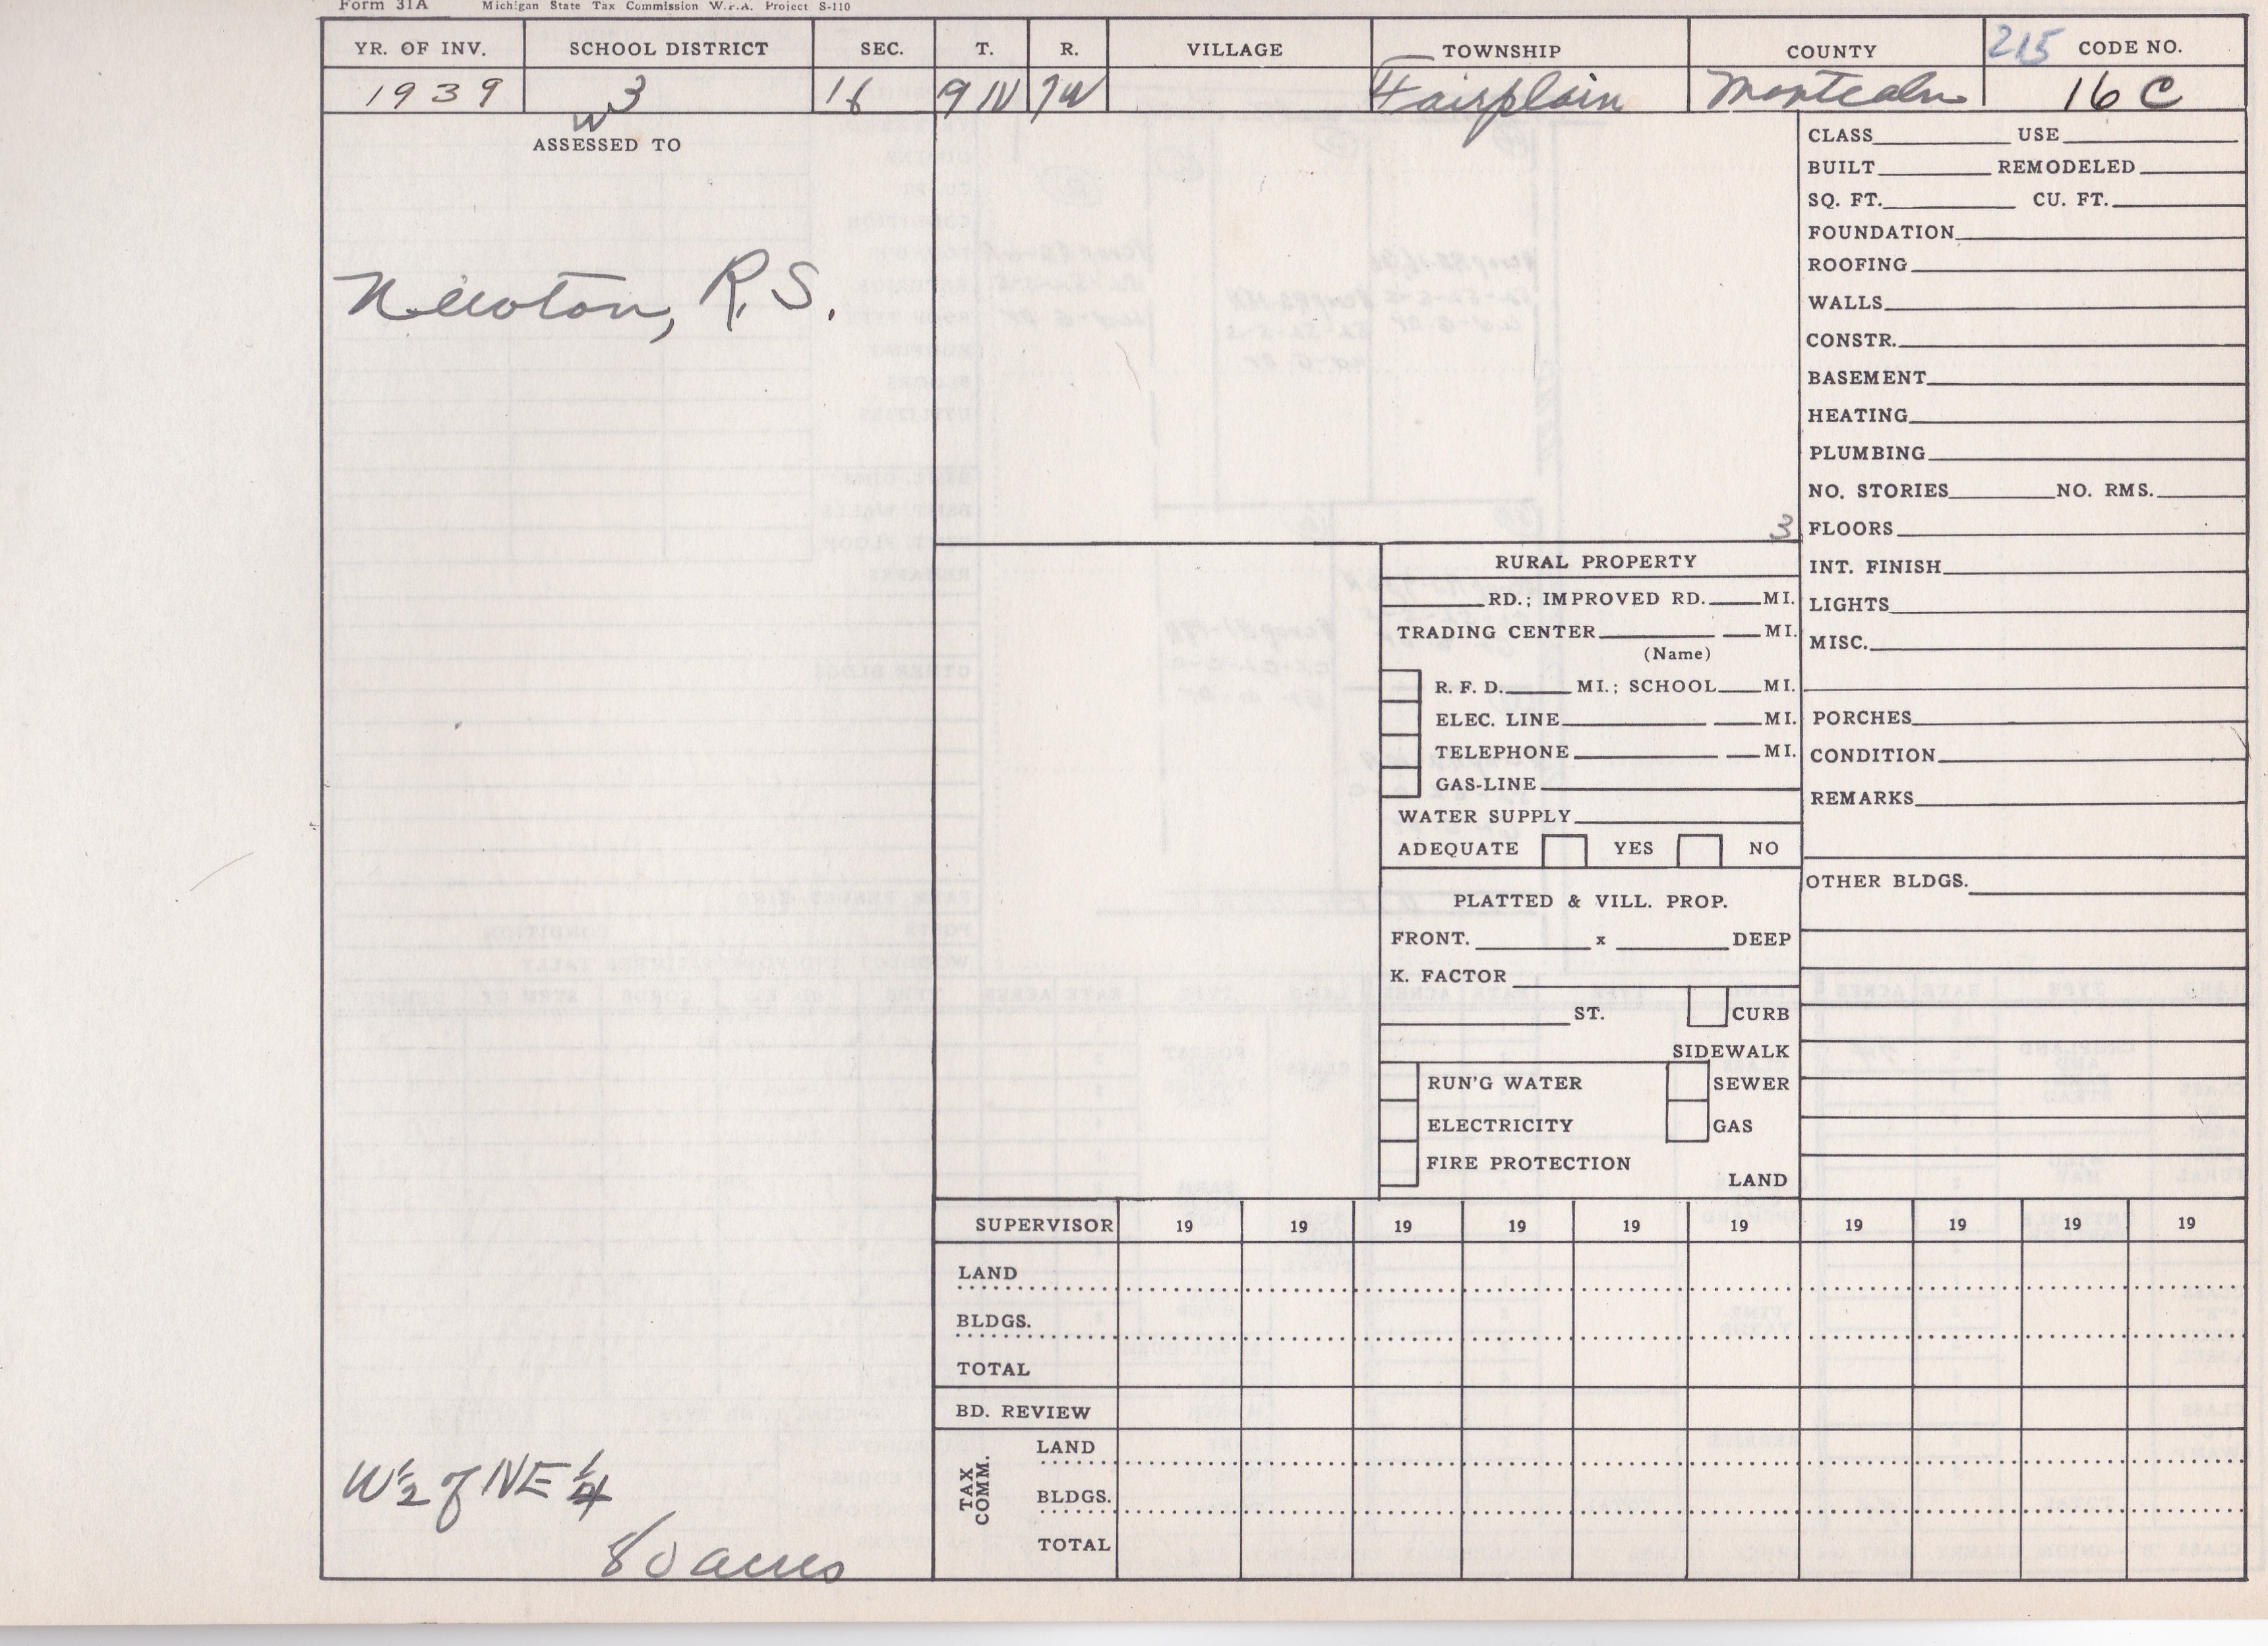 Form 31A Michigan State Tax Commission W.P.A. Project S-110
YR. OF INV. SCHOOL DISTRICT SEC. T. R. VILLAGE TOWNSHIP COUNTY 215 CODE NO.
1939 3 16 9N 7W Fairplain Montcalm 16 C
W
ASSESSED TO
Newton, R.S.
W 1/2 of NE 1/4
80 acres
3
RURAL PROPERTY
RD.; IMPROVED RD. MI.
TRADING CENTER MI.
(Name)
R. F. D. MI.; SCHOOL MI.
ELEC. LINE MI.
TELEPHONE MI.
GAS-LINE
WATER SUPPLY
ADEQUATE YES NO
PLATTED & VILL. PROP.
FRONT. x DEEP
K. FACTOR
ST. CURB
SIDEWALK
RUN'G WATER SEWER
ELECTRICITY GAS
FIRE PROTECTION
LAND
CLASS USE
BUILT REMODELED
SQ. FT. CU. FT.
FOUNDATION
ROOFING
WALLS
CONSTR.
BASEMENT
HEATING
PLUMBING
NO. STORIES NO. RMS.
FLOORS
INT. FINISH
LIGHTS
MISC.
PORCHES
CONDITION
REMARKS
OTHER BLDGS.
SUPERVISOR 19 19 19 19 19 19 19 19 19 19
LAND
BLDGS.
TOTAL
BD. REVIEW
TAX COMM.
LAND
BLDGS.
TOTAL